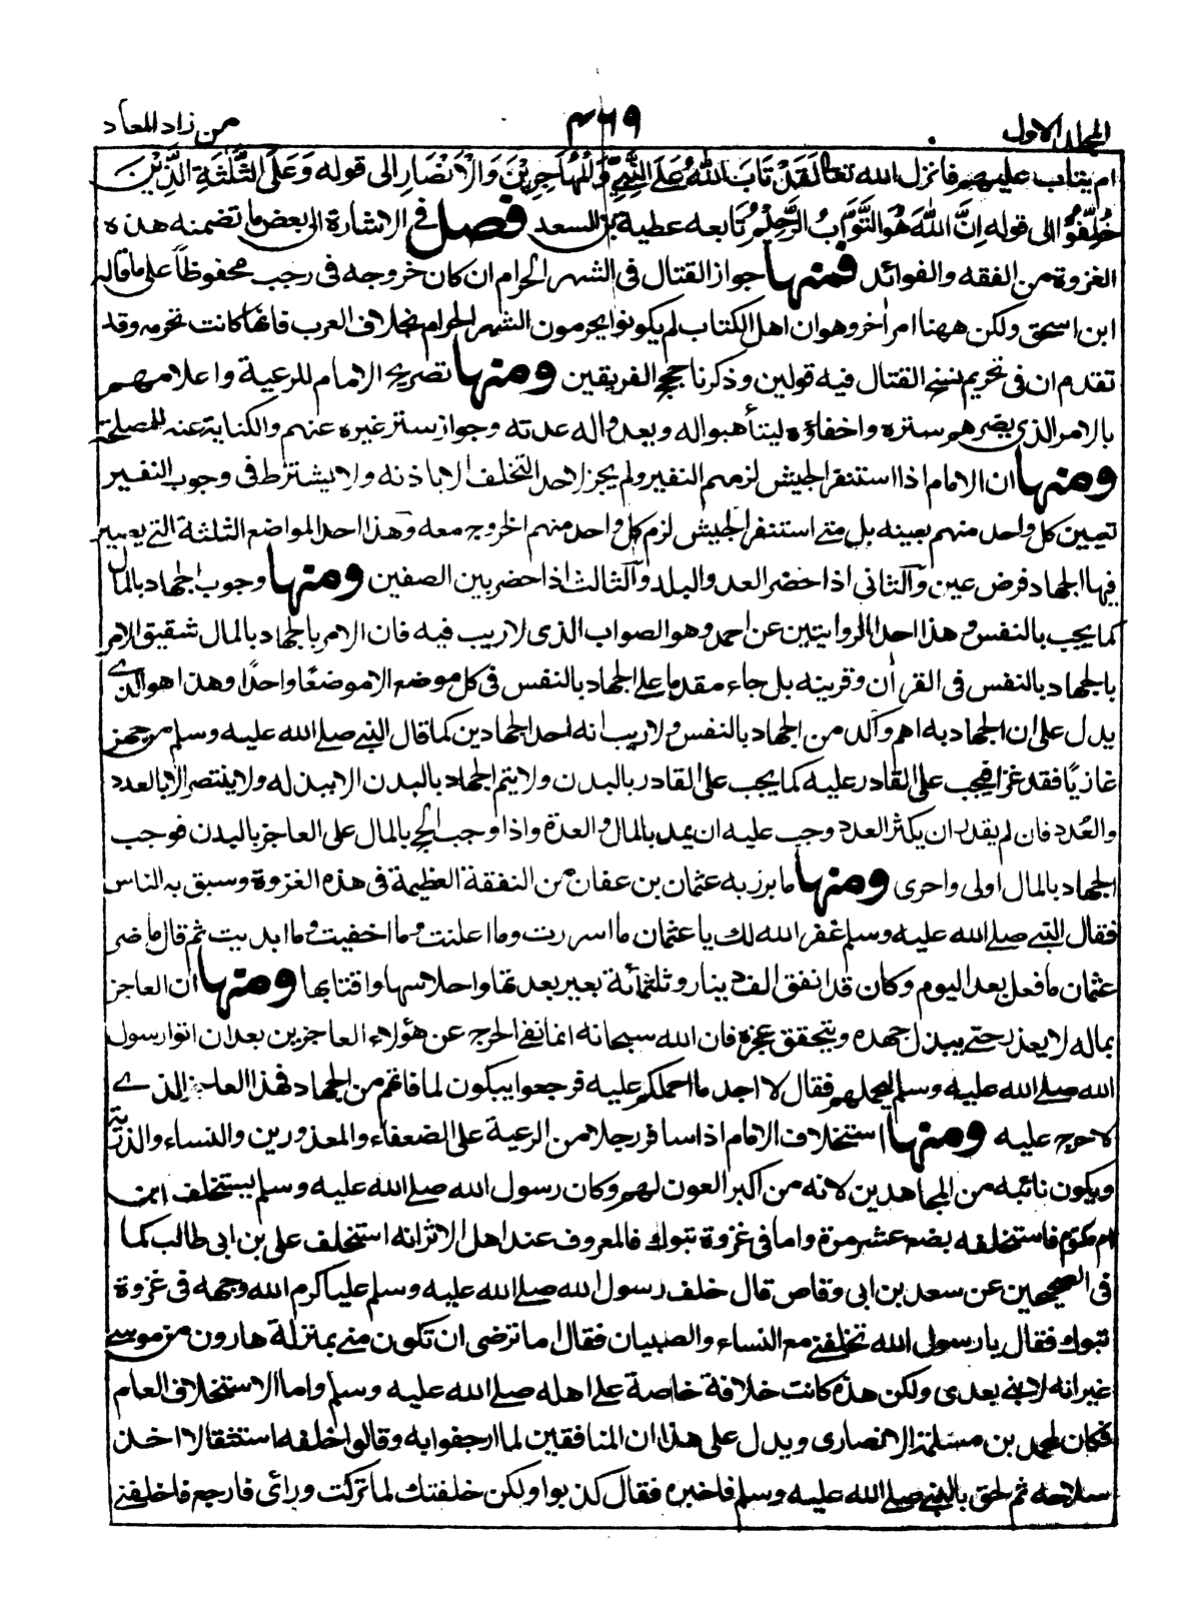 المجلد الاول
۴۶۹
من زاد المعاد
ام يتاب عليهم فانزل الله تعالى لَقَدْ تَابَ اللهُ عَلَى النَّبِيِّ وَالْمُهَاجِرِيْنَ وَالْاَنْصَارِ الى قوله وَعَلَى الثَّلٰثَةِ الَّذِيْنَ
خُلِّفُوْا الى قوله اِنَّ اللهَ هُوَ التَّوَّابُ الرَّحِيْمُ تابعه عطية بن السعد فصل في الاشارة الى بعض ما تضمنه هذه
الغزوة من الفقه والفوائد فمنها جواز القتال فى الشهر الحرام ان كان خروجه فى رجب محفوظاً على ما قاله
ابن اسحق ولكن ههنا امر اٰخر وهو ان اهل الكتاب لم يكونوا يحرمون الشهر الحرام بخلاف العرب فانها كانت تحرمه وقد
تقدم ان فى تحريم نسخ القتال فيه قولين وذكرنا حجج الفريقين ومنها تصريح الامام للرعية واعلامهم
بالامر الذى يضرهم ستره واخفاؤه ليتأهبوا له ويعدوا له عدته وجواز ستر غيره عنهم والكناية عنه للمصلحة
ومنها ان الامام اذا استنفر الجيش لزمهم النفير ولم يجز لاحد التخلف الا باذنه ولا يشترط فى وجوب النفير
تعيين كل واحد منهم بعينه بل متى استنفر الجيش لزم كل واحد منهم الخروج معه وهذا احد المواضع الثلثة التى يصير
فيها الجهاد فرض عين والثانى اذا حضر العدو البلد والثالث اذا حضر بين الصفين ومنها وجوب الجهاد بالمال
كما يجب بالنفس و هذا احد الروايتين عن احمد وهو الصواب الذى لا ريب فيه فان الامر بالجهاد بالمال شقيق الامر
بالجهاد بالنفس فى القراٰن وقرينه بل جاء مقدما على الجهاد بالنفس فى كل موضع الا موضعًا واحدًا وهذا هو الذى
يدل على ان الجهاد به اهم وآكد من الجهاد بالنفس ولا ريب انه احد الجهادين كما قال النبى صلى الله عليه وسلم من جهز
غازيًا فقد غزا فيجب على القادر عليه كما يجب على القادر بالبدن ولا يتم الجهاد بالبدن الا ببذله ولا ينتصر الا بالعدد
والعُدد فان لم يقدر ان يكثر العدد وجب عليه ان يمد بالمال والعدة واذا وجب الحج بالمال على العاجز بالبدن فوجب
الجهاد بالمال اولى واحرى ومنها ما برز به عثمان بن عفان من النفقة العظيمة فى هذه الغزوة وسبق به الناس
فقال النبى صلى الله عليه وسلم غفر الله لك يا عثمان ما اسررت وما اعلنت وما اخفيت وما ابديت ثم قال ما ضر
عثمان ما فعل بعد اليوم وكان قد انفق الف دينار وثلثمائة بعير بعدتها واحلاسها واقتابها ومنها ان العاجز
بماله لا يعذر حتى يبذل جهده ويتحقق عجزه فان الله سبحانه انما نفى الحرج عن هؤلاء العاجزين بعد ان اتوا رسول
الله صلى الله عليه وسلم ليحملهم فقال لا اجد ما احملكم عليه فرجعوا يبكون لما فاتهم من الجهاد فهذا العاجز الذى
لا حرج عليه ومنها استخلاف الامام اذا سافر رجلا من الرعية على الضعفاء والمعذورين والنساء والذرية
ويكون نائبه من المجاهدين لانه من اكبر العون لهم وكان رسول الله صلى الله عليه وسلم يستخلف ابن
ام مكتوم فاستخلفه بضع عشر مرة واما فى غزوة تبوك فالمعروف عند اهل الاثر انه استخلف على بن ابى طالب كما
فى الصحيحين عن سعد بن ابى وقاص قال خلف رسول الله صلى الله عليه وسلم عليا كرم الله وجهه فى غزوة
تبوك فقال يا رسول الله تخلفنى مع النساء والصبيان فقال اما ترضى ان تكون منى بمنزلة هارون من موسى
غير انه لا نبى بعدى ولكن هذه كانت خلافة خاصة على اهله صلى الله عليه وسلم واما الاستخلاف العام
فكان لمحمد بن مسلمة الانصارى ويدل على هذا ان المنافقين لما ارجفوا به وقالوا خلفه استثقالا اخذ
سلاحه ثم لحق بالنبى صلى الله عليه وسلم فاخبره فقال كذبوا ولكن خلفتك لما تركت ورائى فارجع فاخلفنى